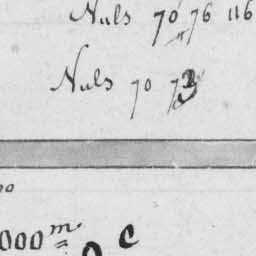 Nuls 70 76 116
Nuls 70 73
000 m
c